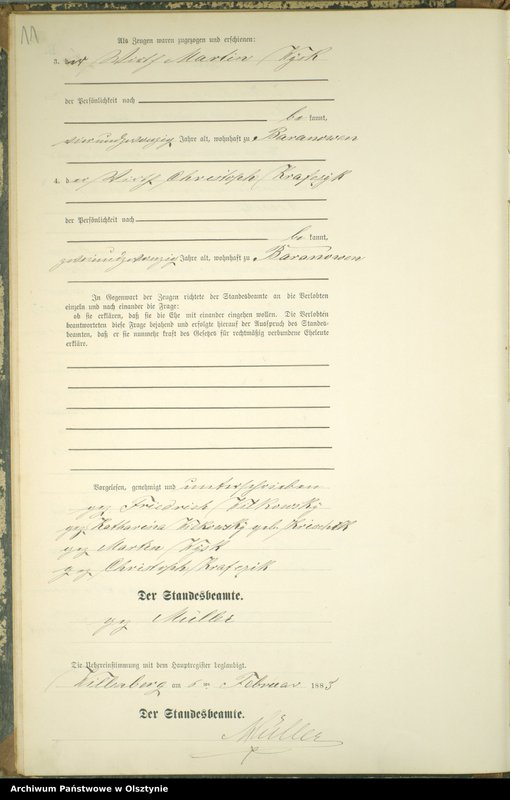 11
Als Zeugen waren zugezogen und erschienen:
3. der Wirth Martin
der Persönlichkeit nach
be kannt,
vierundzwanzig Jahre alt, wohnhaft zu Baranowen
4. der Wirth Christoph Krafczik
der Persönlichkeit nach
be kannt,
Jahre alt, wohnhaft zu Baranowen
In Gegenwart der Zeugen richtete der Standesbeamte an die Verlobten
einzeln und nach einander die Frage:
ob sie erklären, daß sie die Ehe mit einander eingehen wollen. Die Verlobten
beantworteten diese Frage bejahend und erfolgte hierauf der Ausspruch des Standes-
beamten, daß er sie nunmehr kraft des Gesetzes für rechtmäßig verbundene Eheleute
erkläre.
Vorgelesen, genehmigt und unterschrieben
gez Friedrich Wilkowski
gez Katharina Wilkowski geb.
gez Martin
gez Christoph Krafczik
Der Standesbeamte.
gez Müller
Die Uebereinstimmung mit dem Hauptregister beglaubigt.
Willenberg am 5 ten Februar 1885
Der Standesbeamte.
Müller
Archiwum Państwowe w Olsztynie